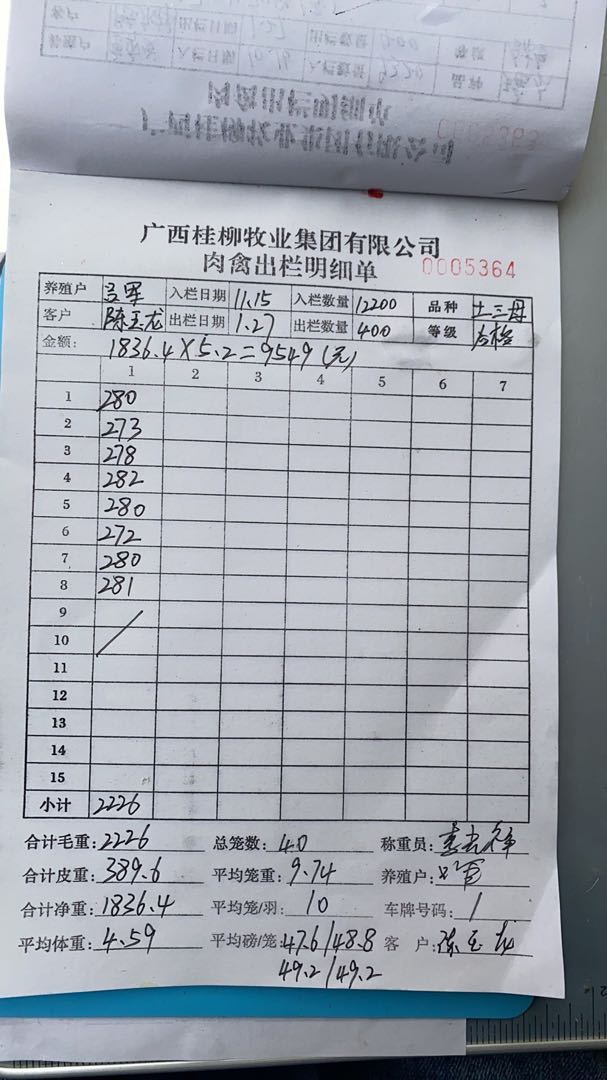 广西桂柳牧业集团有限公司
肉禽出栏明细单 0005364
养殖户 入栏日期 11.15 入栏数量 12200 品种 土三母
客户 陈玉龙 出栏日期 1.27 出栏数量 400 等级 合格
金额: 1836.4×5.2=9549(元)
1 2 3 4 5 6 7
1 280
2 273
3 278
4 282
5 280
6 272
7 280
8 281
9
10
11
12
13
14
15
小计 2226
合计毛重: 2226 总笼数: 40 称重员:
合计皮重: 389.6 平均笼重: 9.74 养殖户:
合计净重: 1836.4 平均笼/羽: 10 车牌号码: /
平均体重: 4.59 平均磅/笼: 47.6/48.8 客 户: 陈玉龙
49.2/49.2